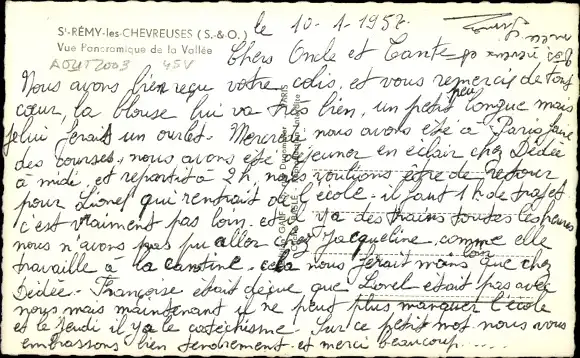 St-RÉMY-les-CHEVREUSES (S.-&-O.)
Vue Panoramique de la Vallée
AOUT 2003 45V
le 10-1-1957.
Chers Oncle et Tante
Nous avons bien reçu votre colis, et vous remercie de tout
cœur, la blouse lui va très bien, un petit peu longue mais
je lui ferait un ourlet. Mercredi nous avons été à Paris faire
des courses, nous avons été déjeuner en éclair chez Dédée
à midi et repartit à 2h, nous voulions être de retour
pour Lionel qui rentrait de l'école. il faut 1h de trajet
c'est vraiment pas loin. et il y a des trains toutes les heures
nous n'avons pas pu aller chez Jacqueline, comme elle
travaille à la cantine, cela nous ferait moins loin que chez
Dédée. Françoise était déçue que Lionel était pas avec
nous mais maintenant il ne peut plus manquer l'école
et le Jeudi il y a le catéchisme. Sur ce petit mot nous vous
embrassons bien tendrement et merci beaucoup.....